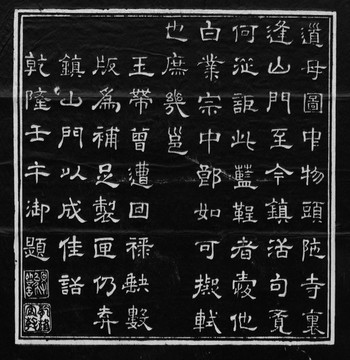 遺母圖中物頭陀寺裏
逢山門至今鎮活句覓
何從詎此藍鞓者他
白業宗中郎如可擬軾
也庶幾邕
玉帶曾遭回祿缺數
版為補足製匣仍弆
鎮山門以成佳話
乾隆壬午御題